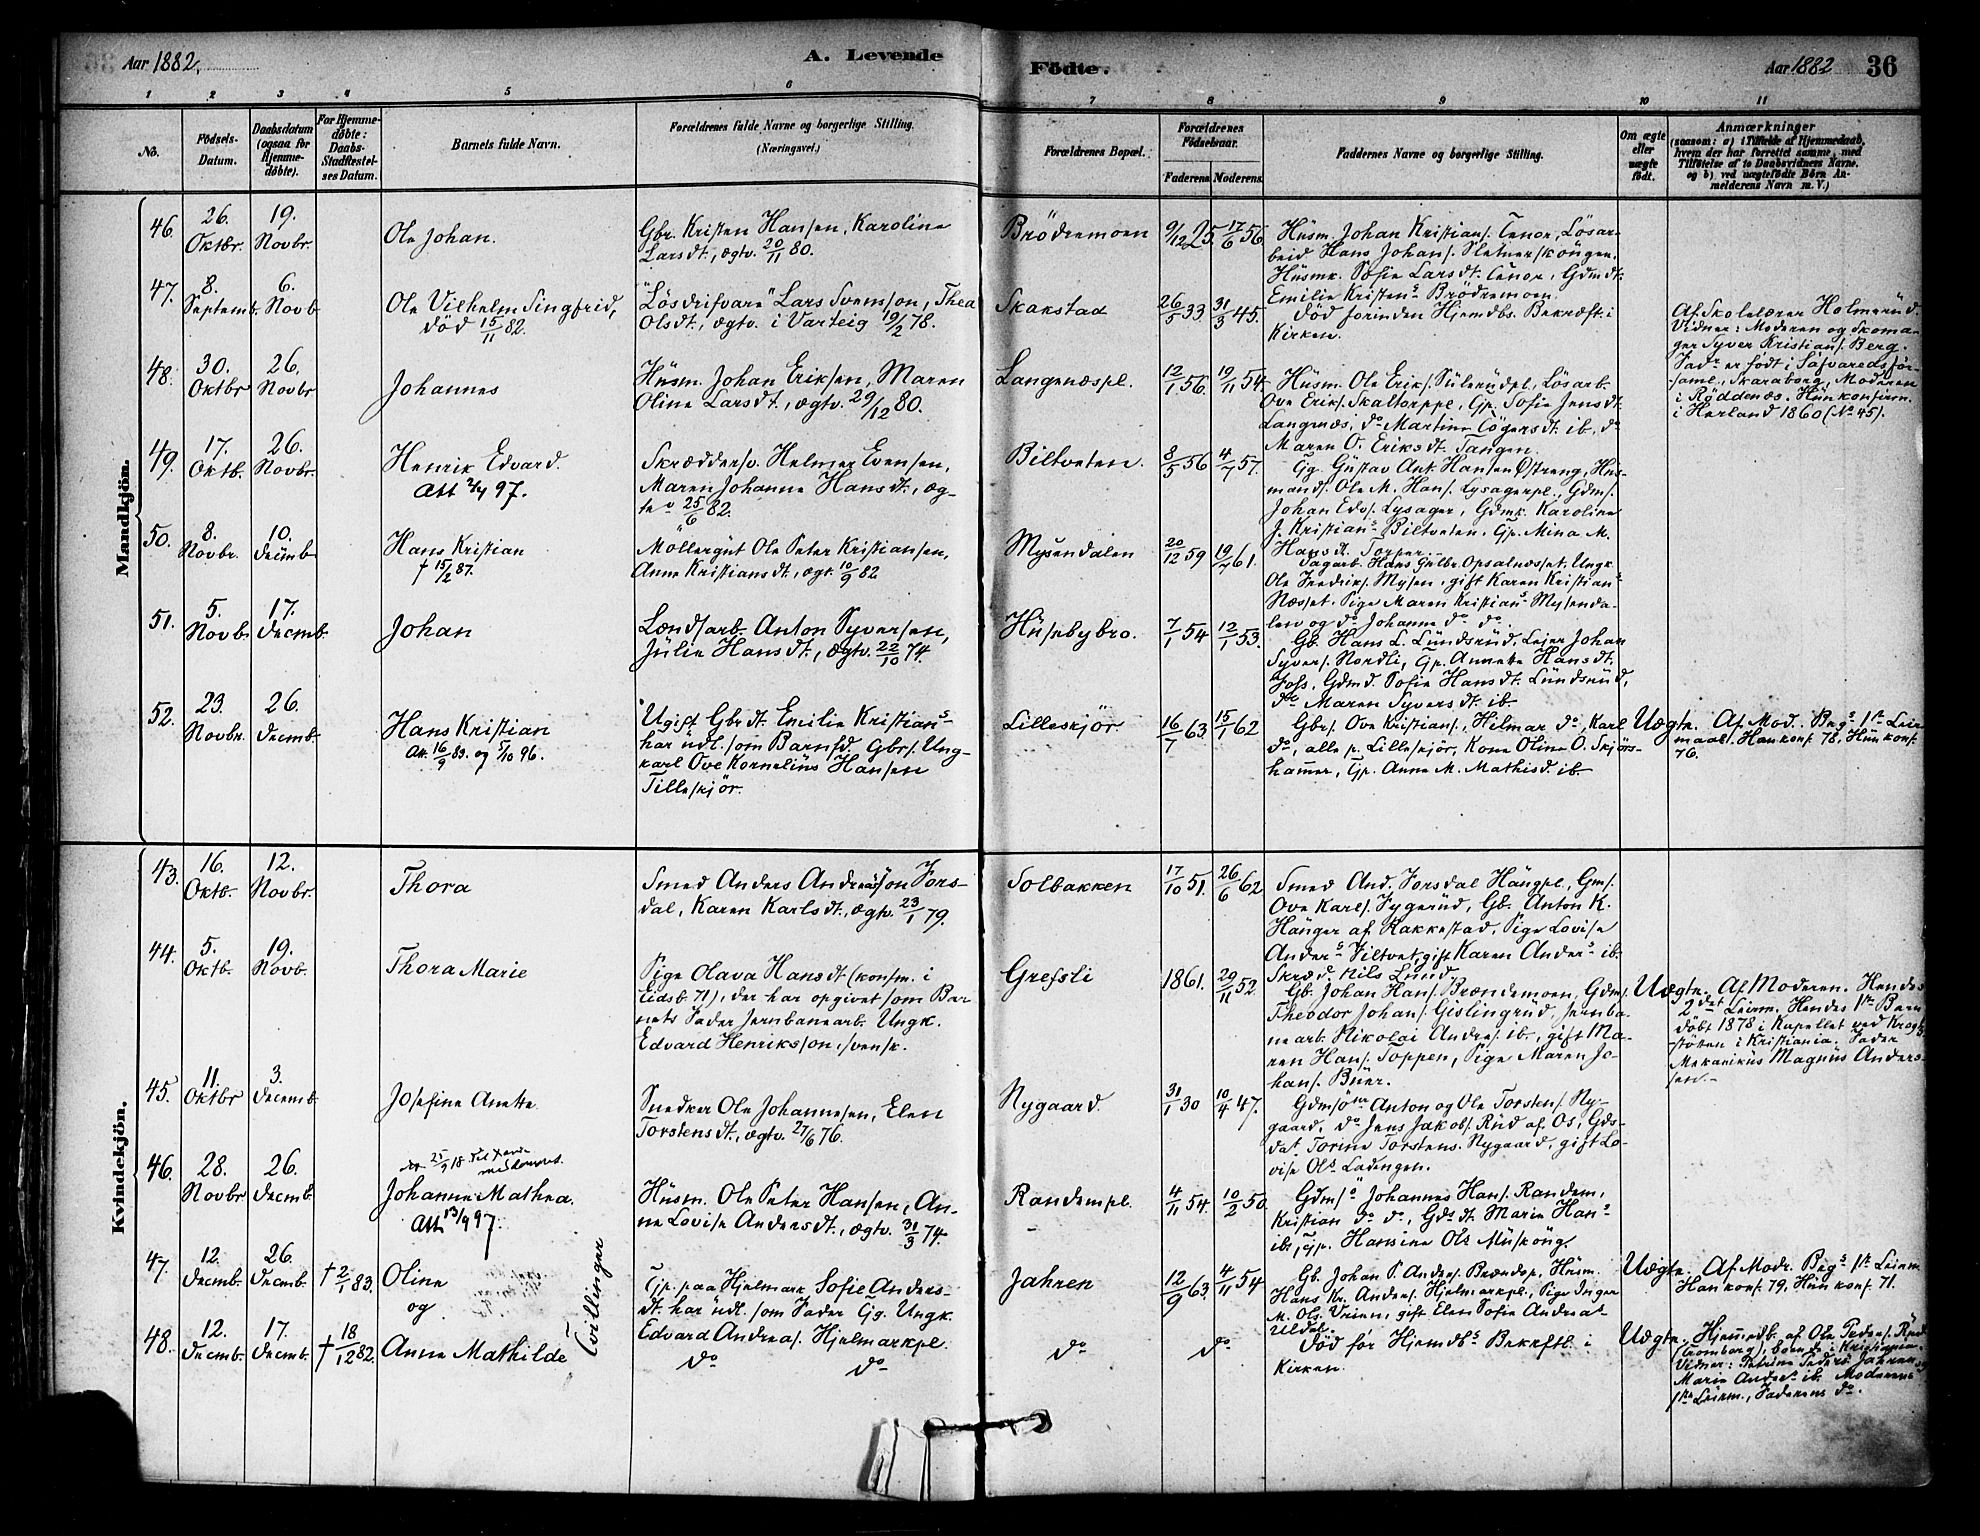 Aar 1882.
A. Levende
Födte.
Aar 1882
36
1
2
3
4
5
6
7
8
9
10
11
No.
Födsels-
Datum.
Daabsdatum
(ogsaa for
Hjemme-
döbte).
For Hjemme-
döbte:
Daabs-
Stadfestel-
ses Datum.
Barnets fulde Navn.
Forældrenes fulde Navne og borgerlige Stilling.
(Næringsvei.)
Forældrenes Bopæl.
Forældrenes
Födselsaar.
Faderens.
Moderens.
Faddernes Navne og borgerlige Stilling.
Om ægte
eller
uægte
födt.
Anmærkninger
(saasom: a) i Tilfælde af Hjemmedaab,
hvem der har forrettet samme, med
Tilföielse af to Daabsvidners Navne,
og b) ved uægtefödte Börn An-
melderens Navn m. V.)
Mandkjön.
46.
26.
Oktbr.
19.
Novbr.
Ole Johan.
Gbr. Kristen Hansen, Karoline
Larsdt., ægtv. 20/11 80.
Brödremoen
9/12 25.
17/6 56
Husm. Johan Kristians. Tenor, Lösar-
beid Hans Johans. Sletnerskougen,
Husmk. Sofie Larsdt. Tenor, Gdmdt.
Emilie Kristens Brödremoen.
47.
8.
Septemb.
6.
Novb.
Ole Vilhelm Singfrid,
död 15/11 82.
"Lösdrifvare" Lars Svensson, Thea
Olsdt., ægtv. i Varteig 19/2 78.
Skakstad
26/5 33.
31/3 45.
Död forinden Hjemdbs. Bekræft. i
Kirken.
Af Skolelærer Holmerud.
Vidner: Moderen og Skoma-
ger Syver Kristians. Berg.
Fadr er födt i Säfvareds för-
saml., Skaraborg, Moderen
i Röddenæs. Hun konfirm.
i Herland 1860 (No 45).
48.
30.
Oktbr
26.
Novbr
Johannes
Husm. Johan Eriksen, Maren
Oline Larsdt., ægtv. 29/12 80.
Langenæspl.
12/1 56.
19/11 54.
Husm. Ole Eriks. Sulerudpl., Lösarb.
Ove Eriks. Skaltorppl., Gp. Sofie Jensdt.
Langnæs, do Martine Tögersdt. ib., do
Maren O. Eriksdt. Tangen.
49.
17.
Oktb.
26.
Novbr.
Henrik Edvard.
Att 2/4 97.
Skræddersv. Helmer Evensen,
Maren Johanne Hansdt., æg-
tv. 25/6 82.
Biltveten.
8/5 56
4/7 57.
Gg. Gustav Ant. Hansen Østreng, Hus-
mands. Ole M. Hans. Lysagerpl., Gdms.
Johan Edv. Lysager, Gdmk. Karoline
J. Kristians Biltveten, Gp. Mina M.
Hansdt. Torper.
50.
8.
Novbr.
10.
Decemb
Hans Kristian
† 15/2 87.
Möllergut Ole Peter Kristiansen,
Anne Kristiansdt., ægt. 10/9 82
Mysendalen
20/12 59
19/7 61.
Dagarb. Hans Gulbr. Opsalnæsset, Ungk.
Ole Fredriks. Mysen, gift Karen Kristians
Næsset, Pige Maren Kristians Mysenda-
len og do Johanne do do.
51.
5.
Novb.
17.
Decmb.
Johan
Landsarb. Anton Syversen,
Julie Hansdt., ægtv. 22/10 74.
Husebybro.
7/1 54
12/1 53.
Gb. Hans L. Lundsrud, Leier Johan
Syvers. Nordli, Gp. Annette Hansdt.
Foss, Gdmd. Sofie Hansdt. Lundsrud,
do Maren Syversdt. ib.
52.
23.
Novbr.
26.
Decmb.
Hans Kristian
Att. 16/9 89. og 5/10 96.
Ugift Gbrdt. Emilie Kristians
har udl. som Barnefd. Gbrs. Ung-
karl Ove Kornelius Hansen
Lilleskjör.
Lilleskjör
16/7 63
15/1 62
Gbrs. Ove Kristians., Hilmar do, Karl
do, alle p. Lilleskjör, Kone Oline O. Skjörs-
hamer, Gp. Anne M. Mathisd. ib.
Uægte.
Af Mod. Begs 1ste Leier-
maal. Han konf. 78, Hun konf.
76.
Kvindekjön.
43.
16.
Oktb.
12.
Novbr.
Thora
Smed Anders Andreasson Fors-
dal, Karen Karlsdt., ægtv. 23/1 79.
Solbakken
17/10 51.
26/6 62
Smed And. Forsdal Hangpl., Gms.
Ove Karls. Fygerud, Gb. Anton K.
Hanger af Rakkestad, Pige Lovise
Anders Filtvet, gift Karen Anders ib.
Skræd. Nils Lund.
44.
5.
Oktb.
19.
Novb.
Thora Marie
Pige Olava Hansdt (konfm. i
Eidsb. 71), der har opgivet som Bar
nets Fader Jernbanearb. Ungk.
Edvard Henriksson, svensk.
Grefsli
1861.
29/11 52.
Gb. Johan Hans. Brændemoen, Gdms.
Theodor Johans. Gislingrud, Jernba-
nearb. Nikolai Andres. ib., gift Ma-
ren Hans. Toppen, Pige Maren Jo-
hans. Buer.
Uægte.
Af Moderen. Hendes
2det Leierm. Hendes 1ste Barn
döbt 1878 i Kapellet ved Krog-
stötten i Kristiania. Fader
Mekanikus Magnus Anders-
sen.
45.
11.
Oktbr
3.
Decemb.
Josefine Anette
Snedker Ole Johannesen, Elen
Torstensdt., ægtv. 27/6 76.
Nygaard.
31/1 30
10/4 47.
Gdmsönr Anton og Ole Torstens. Ny-
gaard, do Jens Jakobs. Rud af Os, Gds-
dat Torine Torstens. Nygaard, gift Lo-
vise Ols Ladengen.
46.
28.
Novbr
26.
Decmb.
Johanne Mathea.
Att 13/9 97.
Husm. Ole Peter Hansen, An-
ne Lovise Andersdt., ægtv. 31/3 74.
Randempl.
4/11 54.
10/2 50.
Gdms. Johannes Hans. Randem,
Kristian do do, Gdsdt. Marie Hans
ib., Gp. Hansine Ols Muskoug.
47.
12.
Decmb.
26.
Decmb.
† 2/1 83.
Oline
og
Tvillinger
Gp. paa Hjelmark Sofie Anders-
dt. har udl. som Fader Gg. Ungk.
Edvard Andreas. Hjelmarkpl.
Jahren
12/9 63.
4/11 54
Gb. Johan P. Anders. Brændsp., Husm.
Hans Kr. Anders. Hjelmarkpl., Pige Inger
M. Ols. Vrien, gift Elen Sofie Andreas
Uldal.
Uægte.
Af Modr. Begs 1ste Leierm.
Han konf. 79, Hun konf. 71.
48.
12.
Decmb.
17.
Decmb.
† 18/12 82.
Anne Mathilde
do do
do
do
Död för Hjemdbs Bekræftl. i
Kirken.
Uægte.
Hjemmedb. af Ole Peders. Rud
(Tromborg), boende i Kristiania.
Vidner: Petrine Peders Jahren og
Marie Anders ib. Moderens
1ste Leierm., Faderens do.